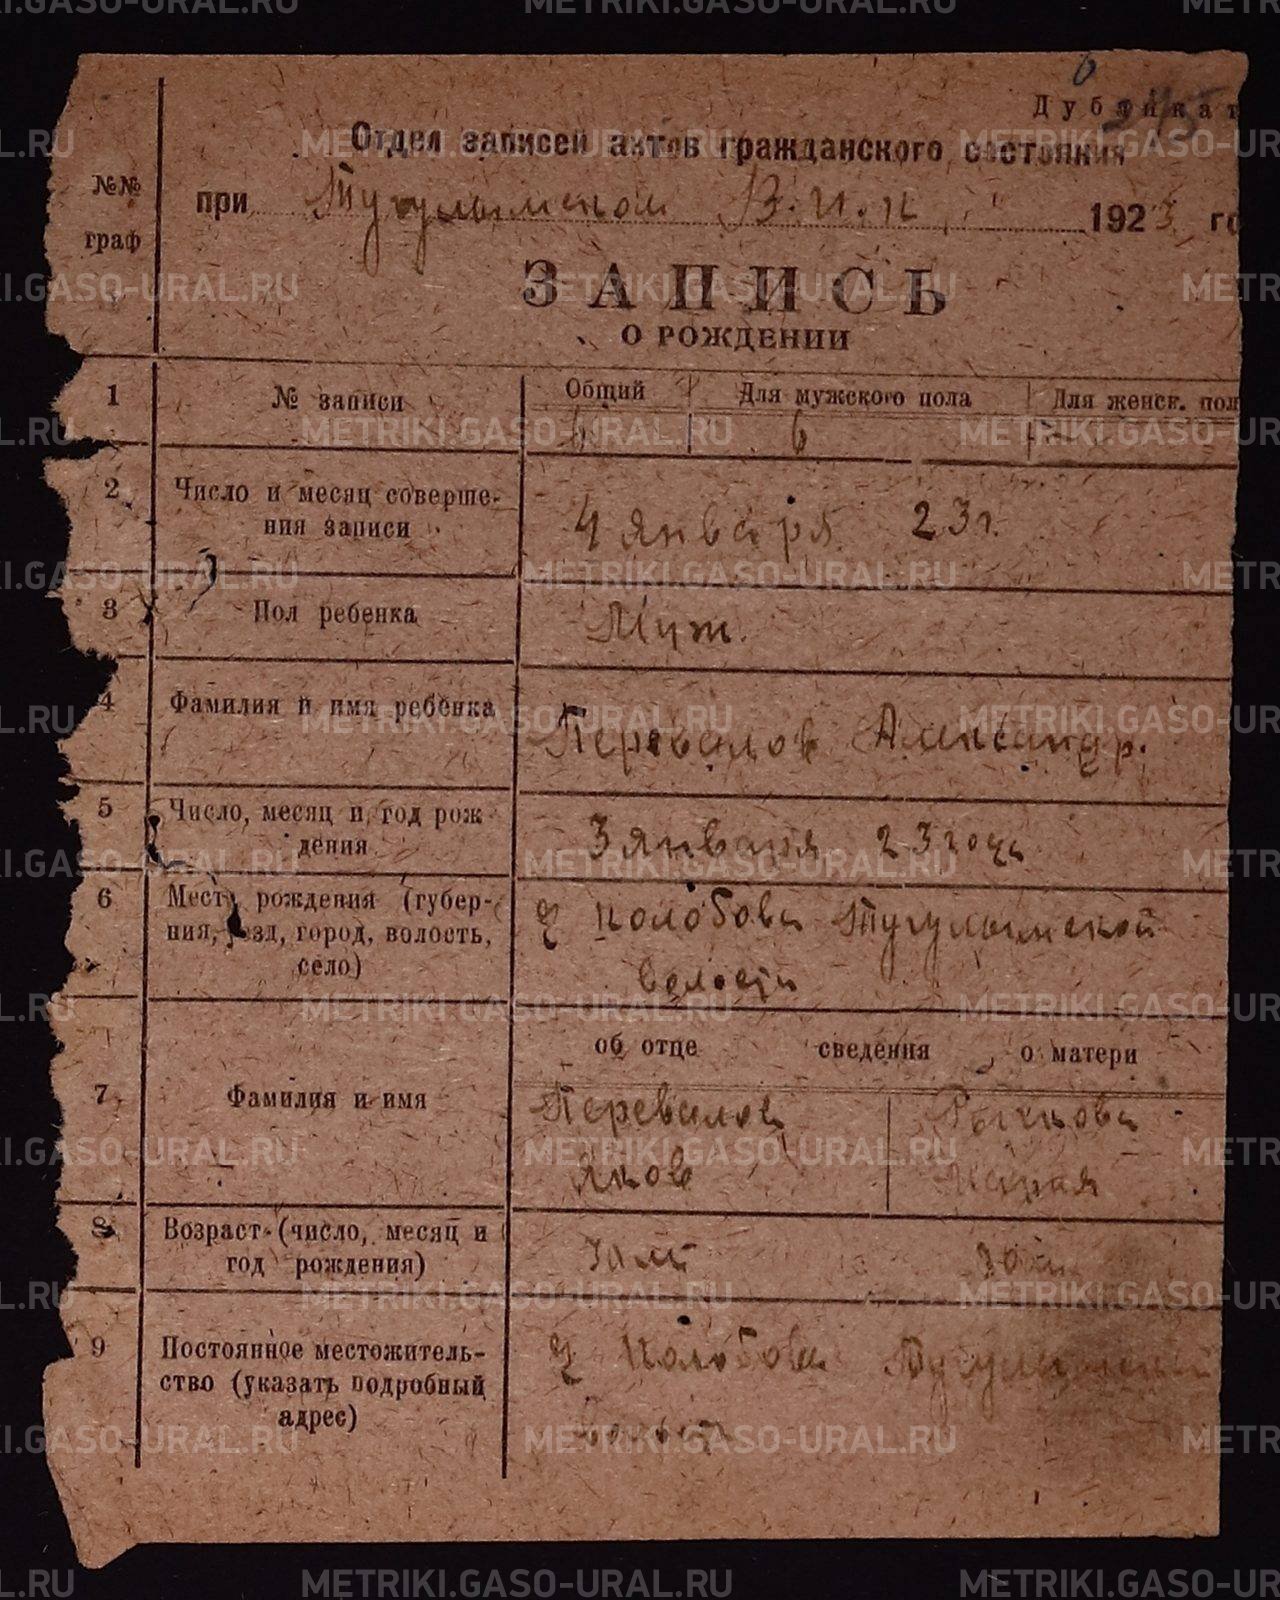 METRIKI.GASO-URAL.RU
Дубликат
Отдел записей актов гражданского состояния
№№ граф
при Тугулымском В.И.К. 1923 го
ЗАПИСЬ
О РОЖДЕНИИ
1 № записи Общий Для мужского пола Для женск. пол
6 6 —
2 Число и месяц соверше-
ния записи
4 января 23 г.
3 Пол ребенка Муж.
4 Фамилия и имя ребенка Перевалов Александр.
5 Число, месяц и год рож
дения
3 января 23 года
6 Место рождения (губер-
ния, уезд, город, волость,
село)
д Колобова Тугулымской
волости
об отце сведения о матери
7 Фамилия и имя
Перевалов Рычкова
Яков Мария
8 Возраст (число, месяц и
год рождения)
9 Постоянное местожитель-
ство (указать подробный
адрес)
д Колобова Тугулымской
волости